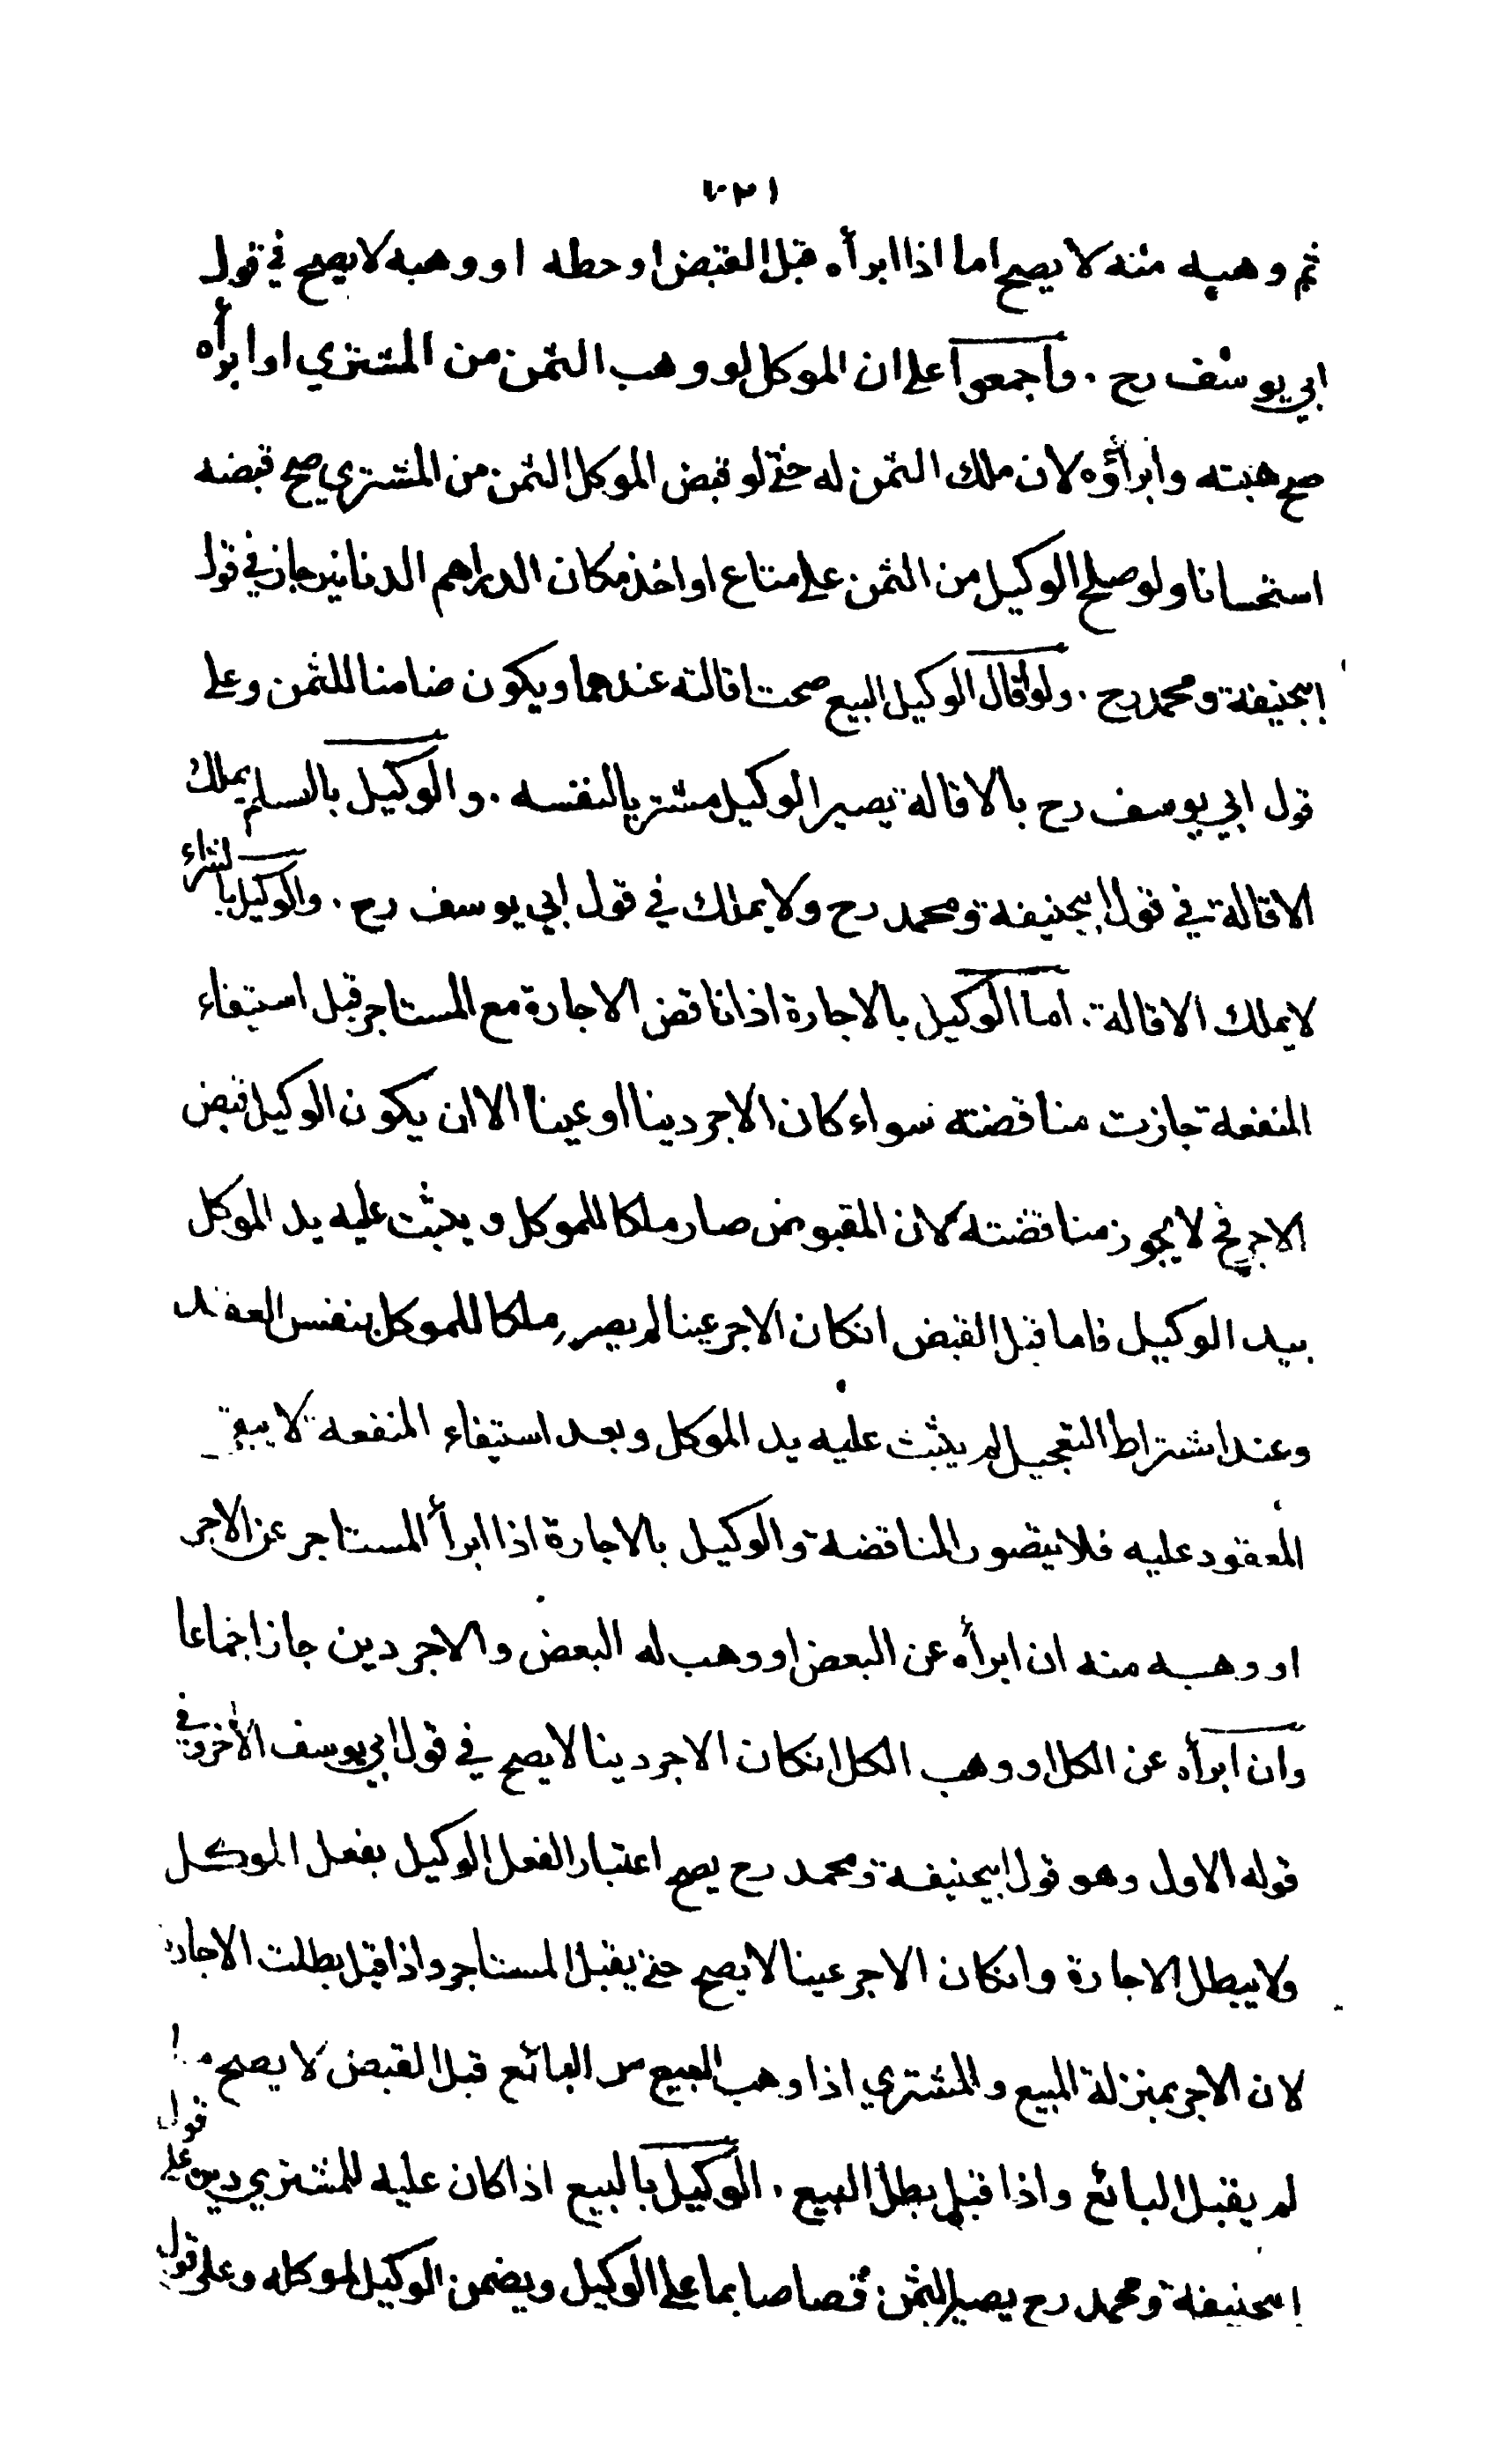 ١٠٢١
ثم وهبه منه لا يصح اما اذا ابرأه قبل القبض او حطه او وهبه لا يصح في قول
ابي يوسف رح . واجمعوا على ان الموكل لو وهب الثمن من المشتري او ابرأه
صح هبته وابرأؤه لان ملك الثمن له حتى لو قبض الموكل الثمن من المشتري صح قبضه
استحسانا ولو صلح الوكيل من الثمن على متاع او اخذ مكان الدراهم الدنانير جاز في قول
ابيحنيفة ومحمد رح . ولو اقال الوكيل البيع صحت اقالته عندهما ويكون ضامنا للثمن وعلى
قول ابي يوسف رح بالاقالة يصير الوكيل مشتريا لنفسه . والوكيل بالسلم يملك
الاقالة في قول ابيحنيفة ومحمد رح ولا يملك في قول ابي يوسف رح . والوكيل بالشراء
لا يملك الاقالة . اما الوكيل بالاجارة اذا ناقض الاجارة مع المستاجر قبل استيفاء
المنفعة جازت مناقضته سواء كان الاجر دينا او عينا الا ان يكون الوكيل قبض
الاجر فح لا يجوز مناقضته لان المقبوض صار ملكا للموكل ويثبت عليه يد الموكل
بيد الوكيل فاما قبل القبض انكان الاجر عينا لم يصر ملكا للموكل بنفس العقد
وعند اشتراط التعجيل لم يثبت عليه يد الموكل وبعد استيفاء المنفعة لا يبقى
المعقود عليه فلا يتصور المناقضة والوكيل بالاجارة اذا ابرأ المستاجر عن الاجر
او وهبه منه ان ابرأه عن البعض او وهب له البعض والاجر دين جاز اجماعا
وان ابرأه عن الكل او وهب الكل انكان الاجر دينا لا يصح في قول ابي يوسف الآخر وفي
قوله الاول وهو قول ابيحنيفة ومحمد رح يصح اعتبارا لفعل الوكيل بفعل الموكل
ولا يبطل الاجارة وانكان الاجر عينا لا يصح حتى يقبل المستاجر واذا قبل بطلت الاجارة
لان الاجر بمنزلة المبيع والمشتري اذا وهب المبيع من البائع قبل القبض لا يصح ما
لم يقبل البائع واذا قبل بطل البيع . الوكيل بالبيع اذا كان عليه للمشتري دين على قول
ابيحنيفة ومحمد رح يصير الثمن قصاصا بما على الوكيل ويضمن الوكيل لموكله وعلى قول